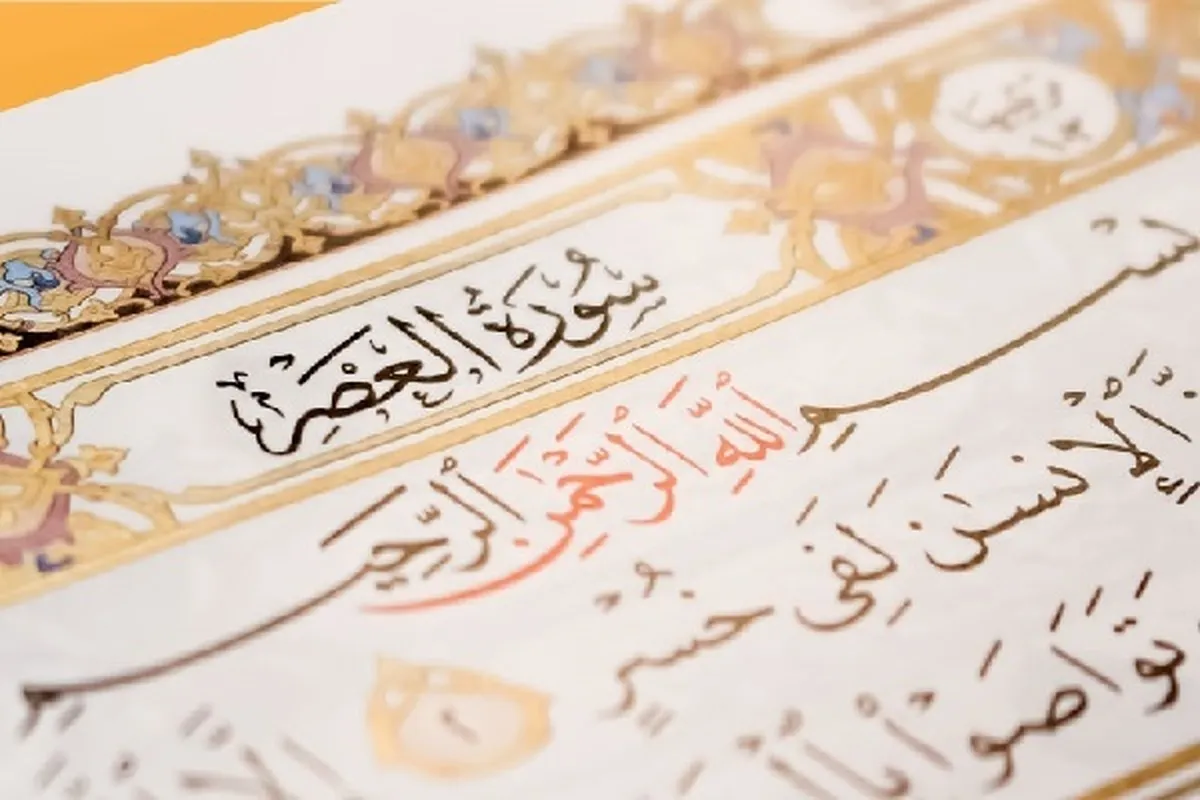 سُورَةُ الْعَصْرِ
بِسْمِ ٱللَّهِ ٱلرَّحْمَٰنِ ٱلرَّحِيمِ
ٱلْإِنسَٰنَ لَفِى خُسْرٍ
وَتَوَاصَوْا۟ بِٱلْ